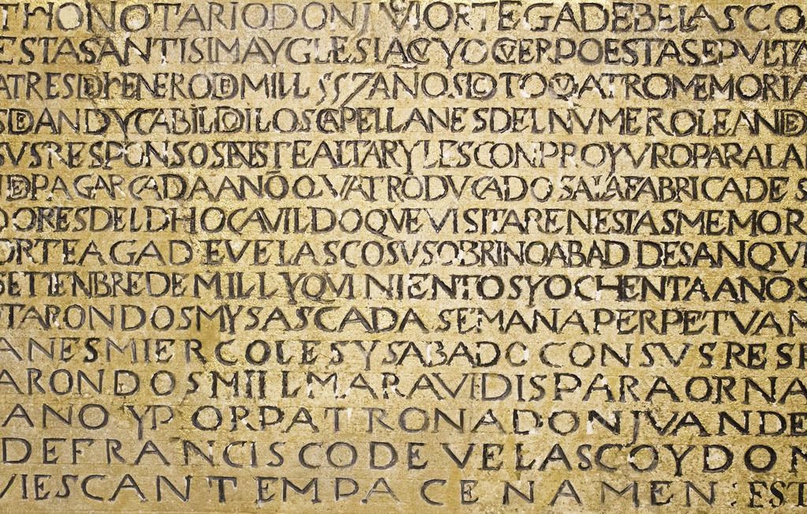 THONOTARIO DON JV ORTEGA DE BELASCO
ESTA SANTISIMA YGLESIA CVYO CVERPO ESTA SEPVLTA
ATRES DE HENERO D MILL
D AN D Y CABILDO D LOS CAPELLANES DEL NVMERO LE AN D
SVS RESPONSOS EN STE ALTAR Y LES CONPRO Y VRO PARA LA
D PAGAR CADA ANO QVATRO DVCADOS A LA FABRICA DE S
DORES DEL DHO CAVILDO QVE VISITAREN ESTAS MEMOR
ORTEAGA DE VELASCO SV SOBRINO ABAD DE SAN QVI
SETIENBRE DE MILL Y QVINIENTOS Y OCHENTA ANOS
OTARON DOS MYSAS CADA SEMANA PERPETVAM
ANES MIERCOLES Y SABADO CON SVS RESP
ARON DOS MIIL MARAVIDIS PARA ORNA
ANO Y POR PATRONA DON JVAN DE
DE FRANCISCO DE VELASCO Y DON
VIESCANT EM PACEN AMEN : EST